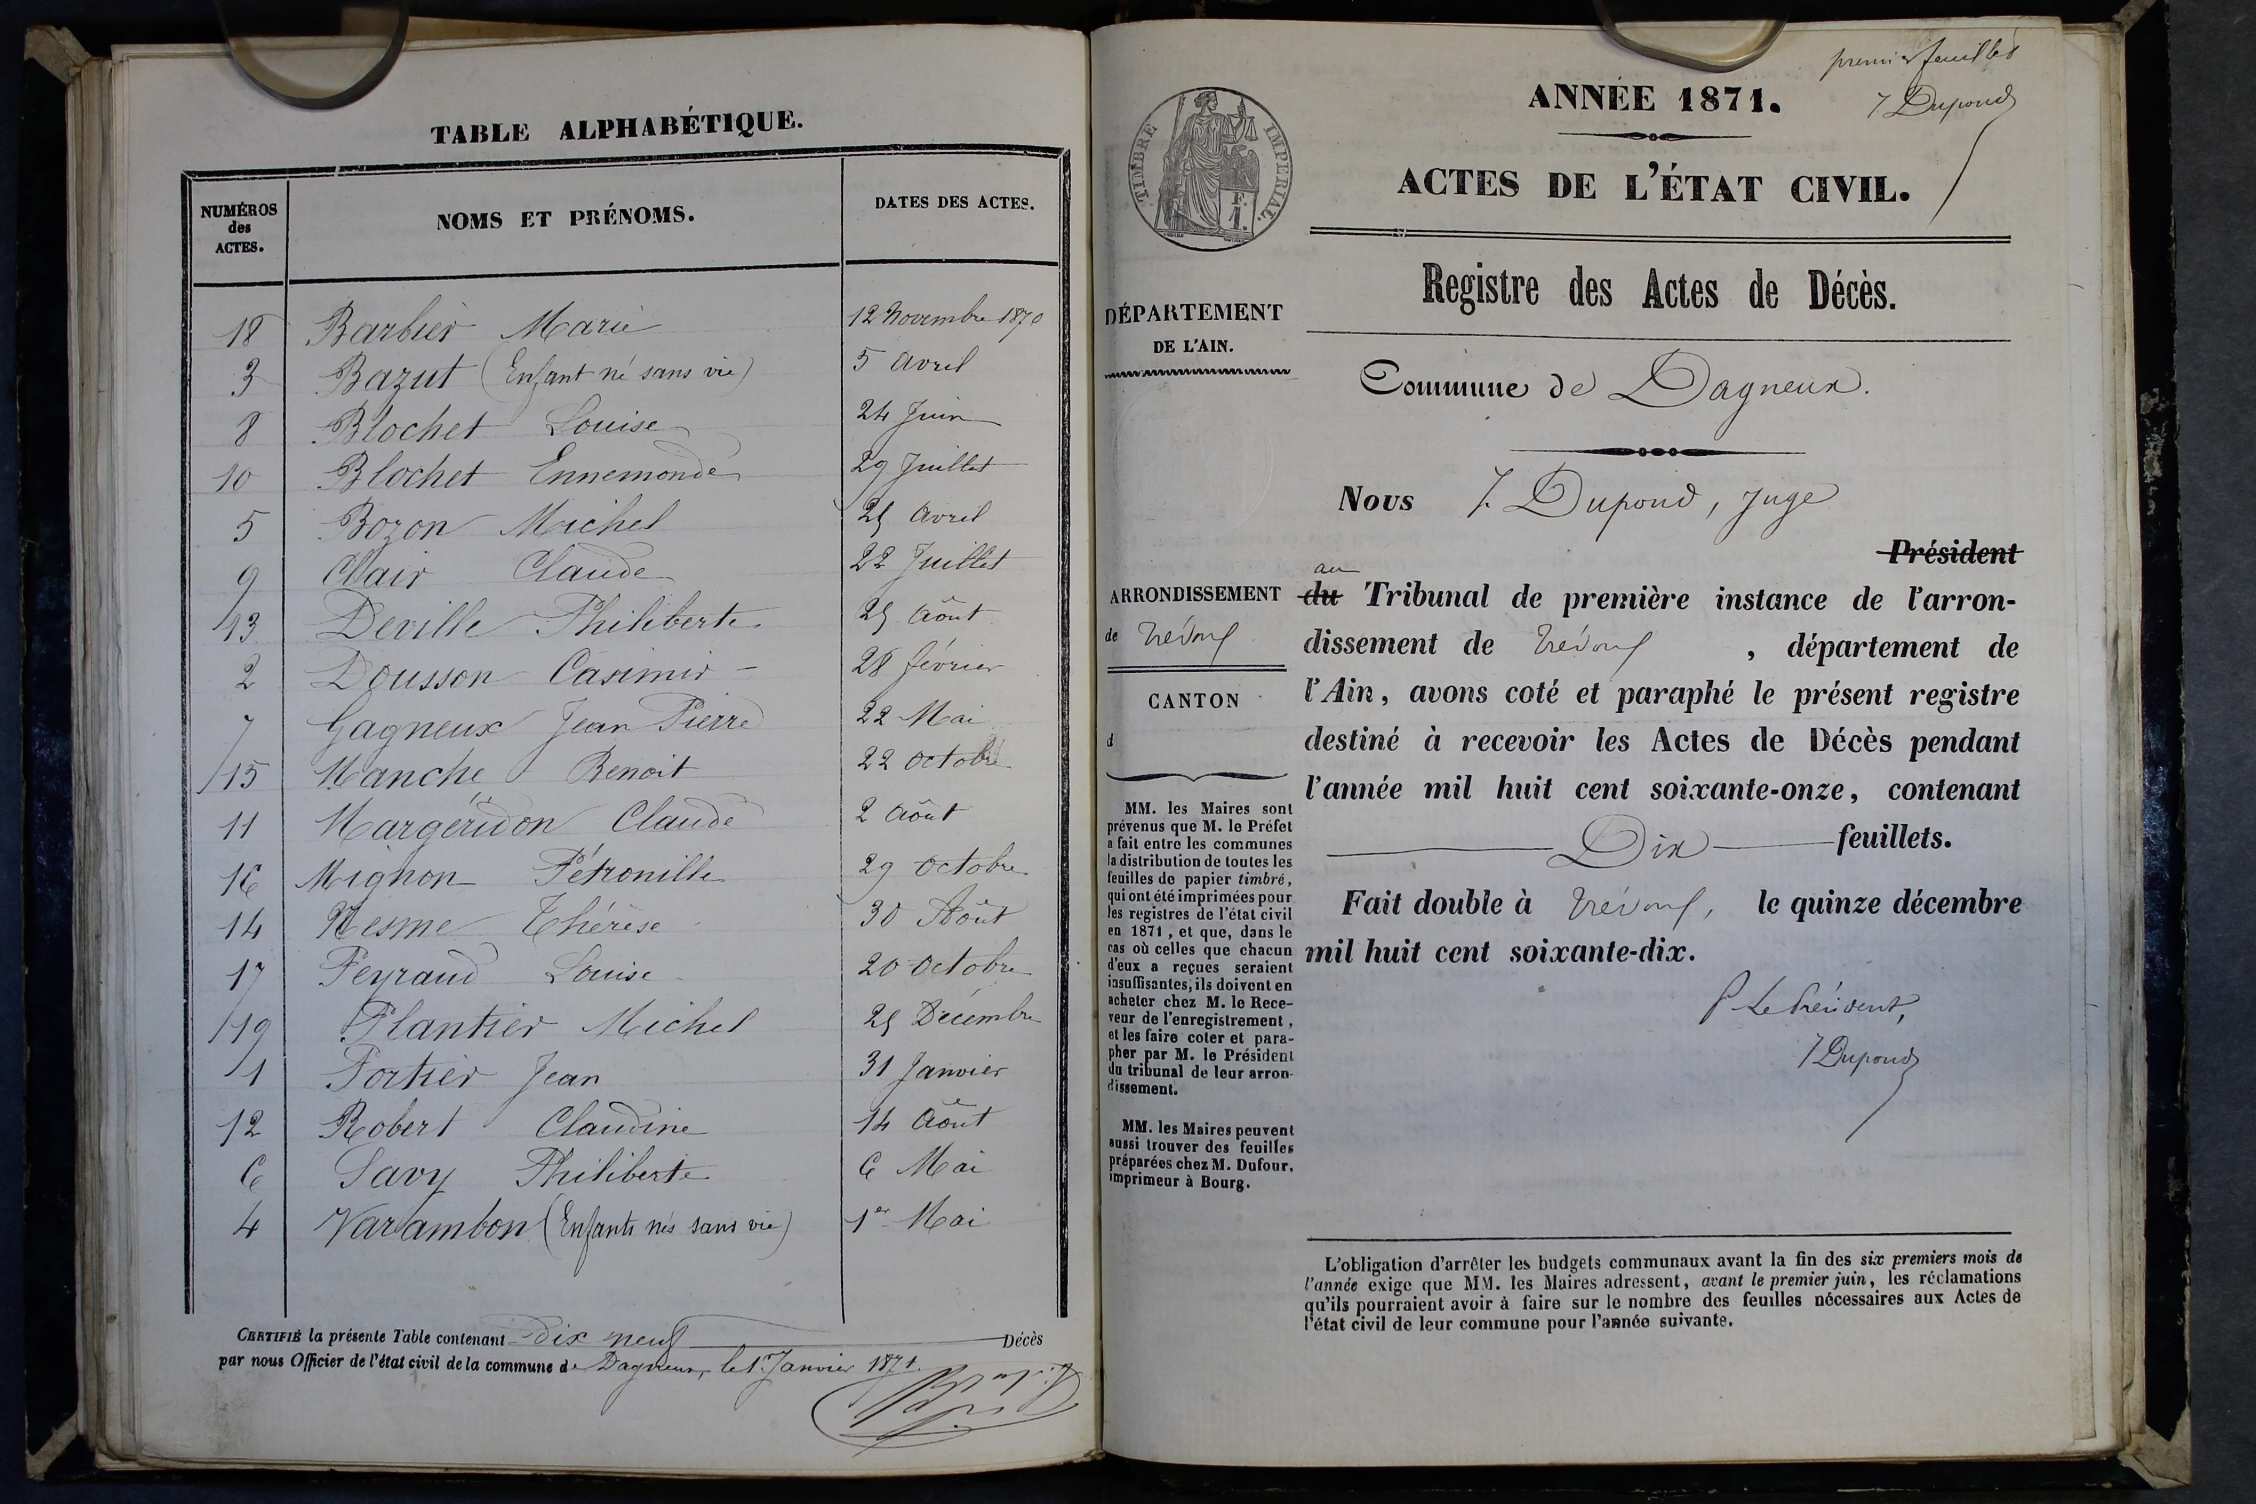 TABLE ALPHABÉTIQUE.
NUMÉROS des ACTES. NOMS ET PRÉNOMS. DATES DES ACTES.
18 Barbier Marie 12 Novembre 1870
3 Bazut (Enfant né sans vie) 5 avril
8 Blochet Louise 24 Juin
10 Blochet Ennemonde 29 Juillet
5 Bozon Michel 25 avril
9 Clair Claude 22 Juillet
13 Deville Philiberte 25 Aôut
2 Dousson Casimir 28 février
7 Gagneux Jean Pierre 22 Mai
15 Manche Benoit 22 octobre
11 Margéridon Claude 2 Aôut
16 Mignon Pétronille 29 octobre
14 Nesme Thérèse 30 Aôut
17 Peyraud Louise 20 octobre
19 Plantier Michel 25 Décembre
1 Portier Jean 31 Janvier
12 Robert Claudine 14 Aôut
6 Savy Philiberte 6 Mai
4 Varambon (Enfants nés sans vie) 1er Mai
CERTIFIÉ la présente Table contenant dix neuf Décès
par nous Officier de l'état civil de la commune de Dagneux, le 1er Janvier 1871.
TIMBRE IMPÉRIAL.
F.
1.
DÉPARTEMENT
DE L'AIN.
ARRONDISSEMENT
de Trévoux
CANTON
d
MM. les Maires sont
prévenus que M. le Préfet
a fait entre les communes
la distribution de toutes les
feuilles de papier timbré,
qui ont été imprimées pour
les registres de l'état civil
en 1871, et que, dans le
cas où celles que chacun
d'eux a reçues seraient
insuffisantes, ils doivent en
acheter chez M. le Rece-
veur de l'enregistrement,
et les faire coter et para-
pher par M. le Président
du tribunal de leur arron-
dissement.
MM. les Maires peuvent
aussi trouver des feuilles
préparées chez M. Dufour,
imprimeur à Bourg.
premier feuillet
J Dupond
ANNÉE 1871.
ACTES DE L'ÉTAT CIVIL.
Registre des Actes de Décès.
Commune de Dagneux.
Nous J. Dupond, Juge
Président
au
du Tribunal de première instance de l'arron-
dissement de Trévoux, département de
l'Ain, avons coté et paraphé le présent registre
destiné à recevoir les Actes de Décès pendant
l'année mil huit cent soixante-onze, contenant
Dix feuillets.
Fait double à Trévoux, le quinze décembre
mil huit cent soixante-dix.
P Le Président,
J Dupond
L'obligation d'arrêter les budgets communaux avant la fin des six premiers mois de
l'année exige que MM. les Maires adressent, avant le premier juin, les réclamations
qu'ils pourraient avoir à faire sur le nombre des feuilles nécessaires aux Actes de
l'état civil de leur commune pour l'année suivante.